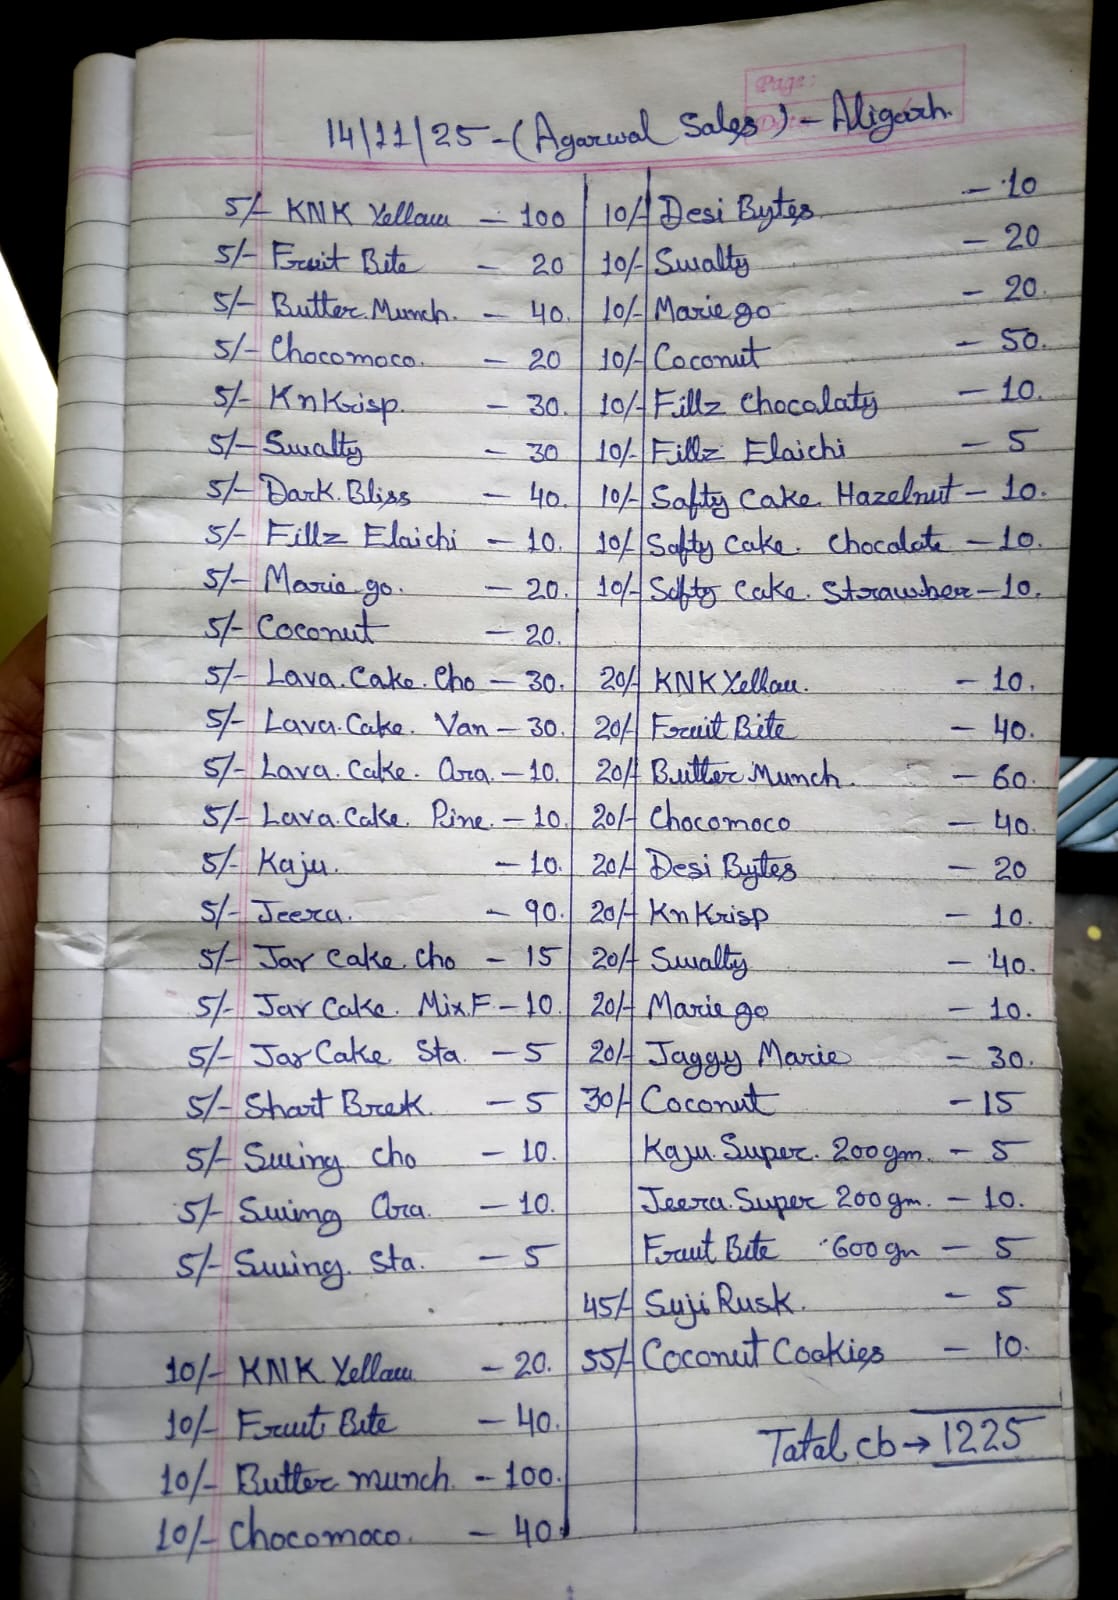 Page:
14/11/25-(Agarwal Sales) - Aligarh.
5/- KNK Yellow - 100
5/- Fruit Bite - 20
5/- Butter Munch. - 40.
5/- Chocomoco. - 20
5/- KnKrisp. - 30.
5/- Swalty - 30
5/- Dark Bliss - 40.
5/- Fillz Elaichi - 10.
5/- Marie go. - 20.
5/- Coconut - 20.
5/- Lava. Cake. Cho - 30.
5/- Lava. Cake. Van - 30.
5/- Lava. Cake. Ora. - 10.
5/- Lava. Cake. Pine. - 10.
5/- Kaju. - 10.
5/- Jeera. - 90.
5/- Jar Cake. Cho - 15
5/- Jar Cake. Mix.F - 10.
5/- Jar Cake. Sta. - 5
5/- Shart Brek. - 5
5/- Swing Cho - 10.
5/- Swing Ora. - 10.
5/- Swing. Sta. - 5
10/- KNK Yellow - 20.
10/- Fruit Bite - 40.
10/- Butter munch. - 100.
10/- Chocomoco. - 40.
10/- Desi Bytes - 10
10/- Swalty - 20
10/- Marie go - 20.
10/- Coconut - 50.
10/- Fillz Chocolaty - 10.
10/- Fillz Elaichi - 5
10/- Safty Cake. Hazelnut - 10.
10/- Safty Cake. Chocolate - 10.
10/- Safty Cake. Strawber - 10.
20/- KNK Yellow. - 10.
20/- Fruit Bite - 40.
20/- Butter Munch. - 60.
20/- Chocomoco - 40.
20/- Desi Bytes - 20
20/- Kn Krisp - 10.
20/- Swalty - 40.
20/- Marie go - 10.
20/- Jaggy Marie - 30.
30/- Coconut - 15
Kaju. Super. 200gm. - 5
Jeera. Super 200gm. - 10.
Fruit Bite 600gm - 5
45/- Suji Rusk. - 5
55/- Coconut Cookies - 10.
Total cb → 1225